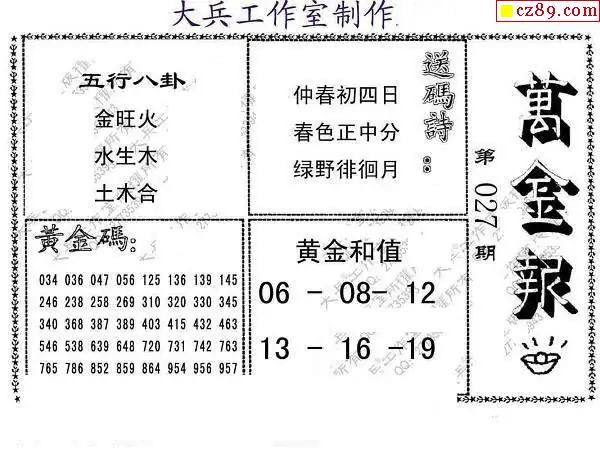 大兵工作室制作
cz89.com
五行八卦
金旺火
水生木
土木合
送碼詩:
仲春初四日
春色正中分
绿野徘徊月
萬金報
第027期
黃金碼:
034 036 047 056 125 136 139 145
246 238 258 269 310 320 330 345
340 368 387 389 403 415 432 463
546 538 639 648 720 731 742 763
765 786 852 859 864 954 956 957
黄金和值
06 - 08- 12
13 - 16 -19